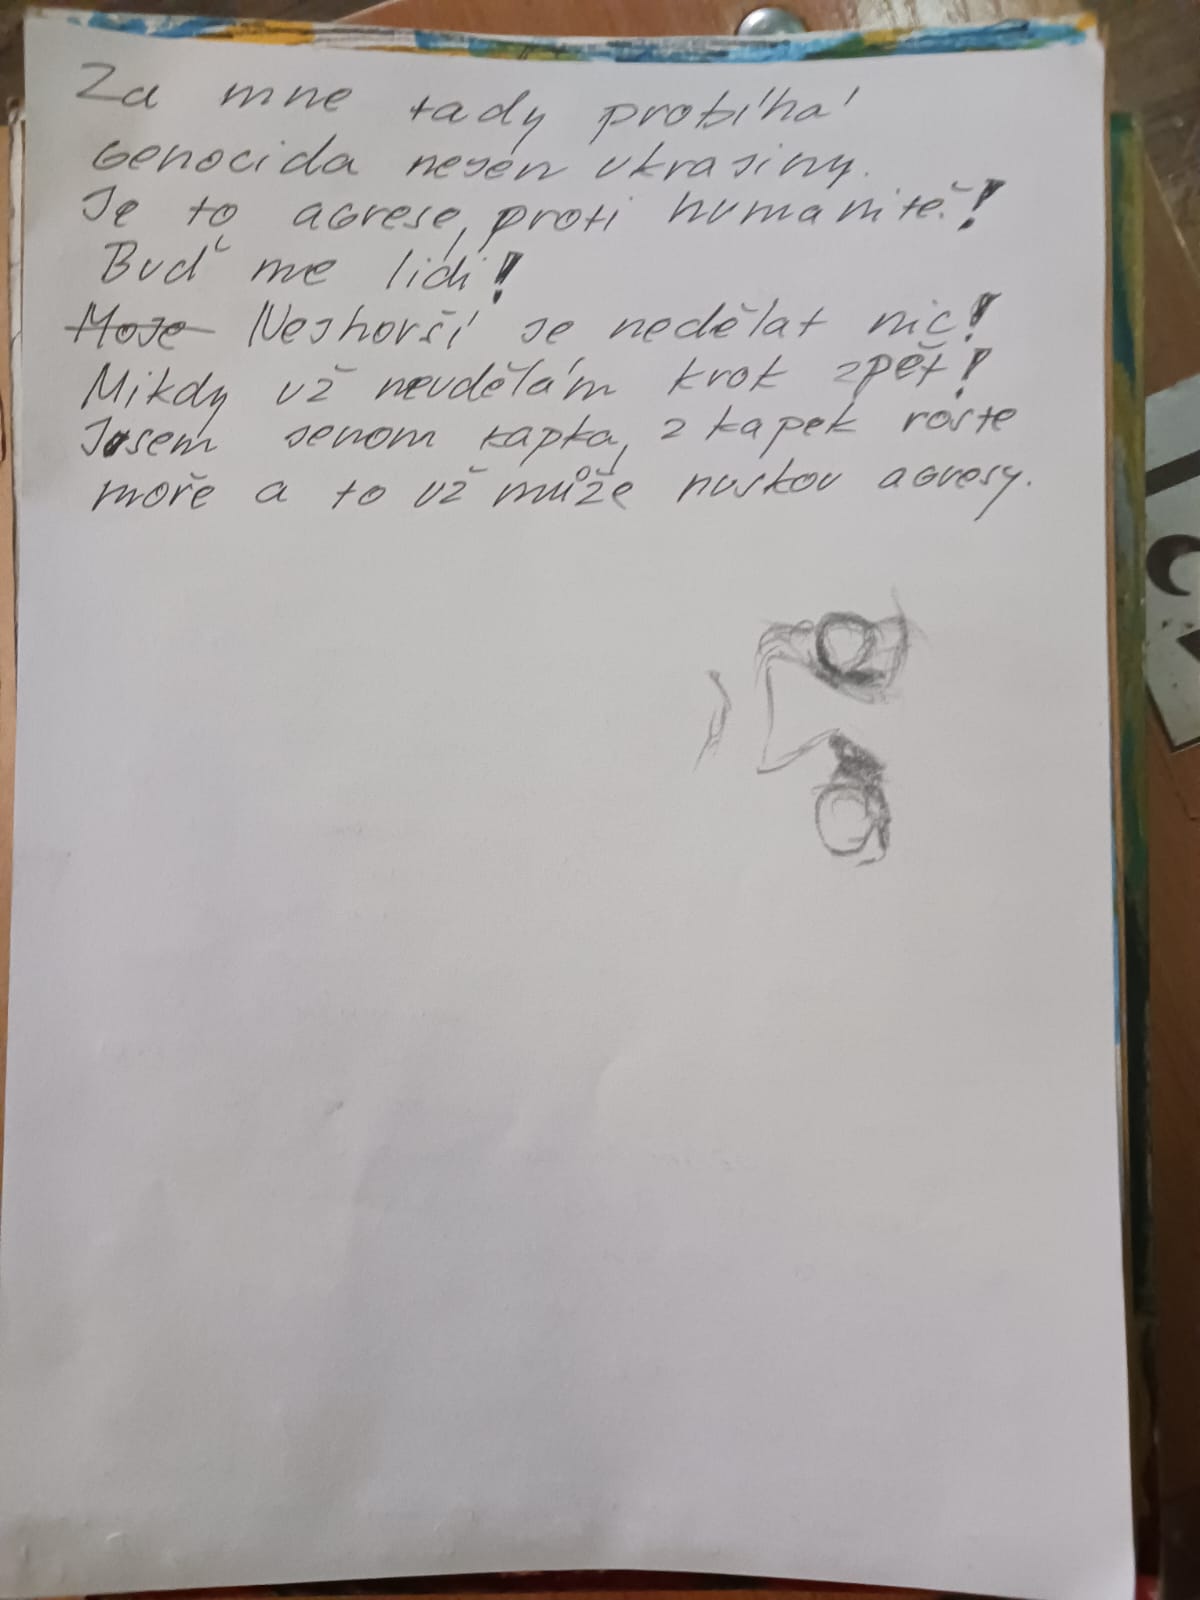 Za mne tady probíhá
Genocida nejen Ukrajiny.
Je to agrese, proti humanitě!
Buď me lidi!
Moje Nejhorší je nedělat nic!
Nikdy už neudělám krok zpět!
Jsem jenom kapka, z kapek roste
moře a to už může agresy.